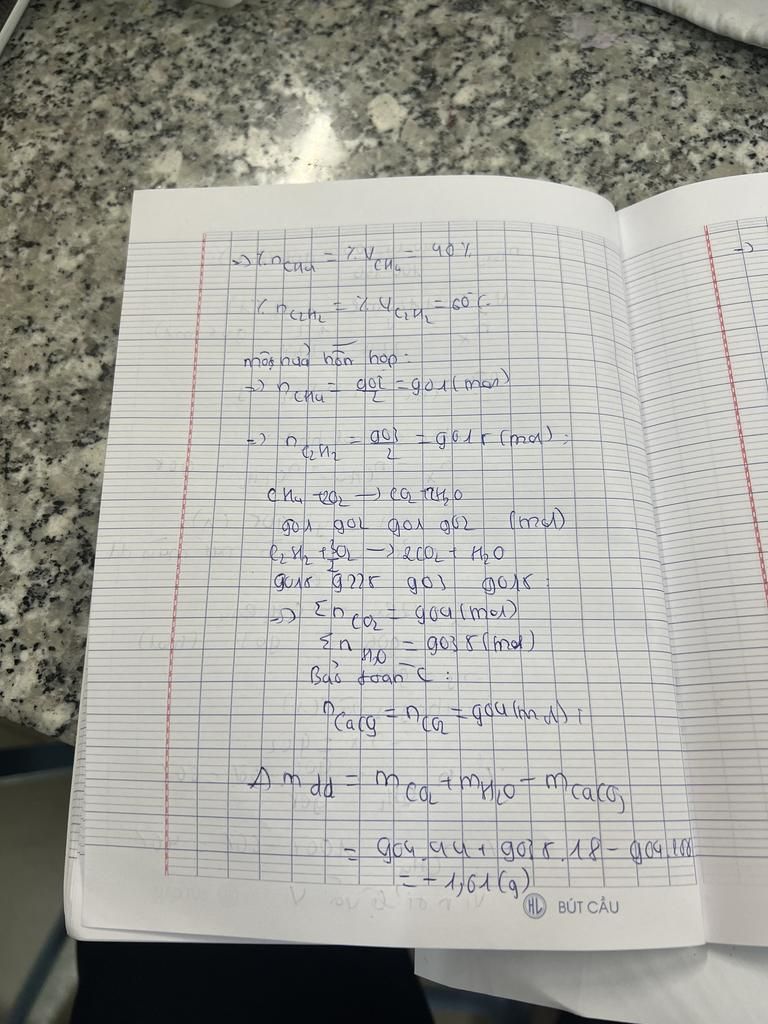 => % n CH4 = % V CH4 = 40 %
% n C2H2 = % V C2H2 = 60 %.
một nửa hỗn hợp:
=> n CH4 = 0,02/2 = 0,01 (mol)
=> n C2H2 = 0,03/2 = 0,015 (mol).
CH4 + 2O2 -> CO2 + 2H2O
0,01 0,02 0,01 0,02 (mol)
C2H2 + 5/2 O2 -> 2CO2 + H2O
0,015 0,03 0,015
=> Σn CO2 = 0,04 (mol)
Σn H2O = 0,035 (mol)
Bảo toàn C:
n CaCO3 = n CO2 = 0,04 (mol);
Δ m dd = m CO2 + m H2O - m CaCO3
= 0,04.44 + 0,035.18 - 0,04.100
= - 1,61 (g)
HL BÚT CẦU
=>